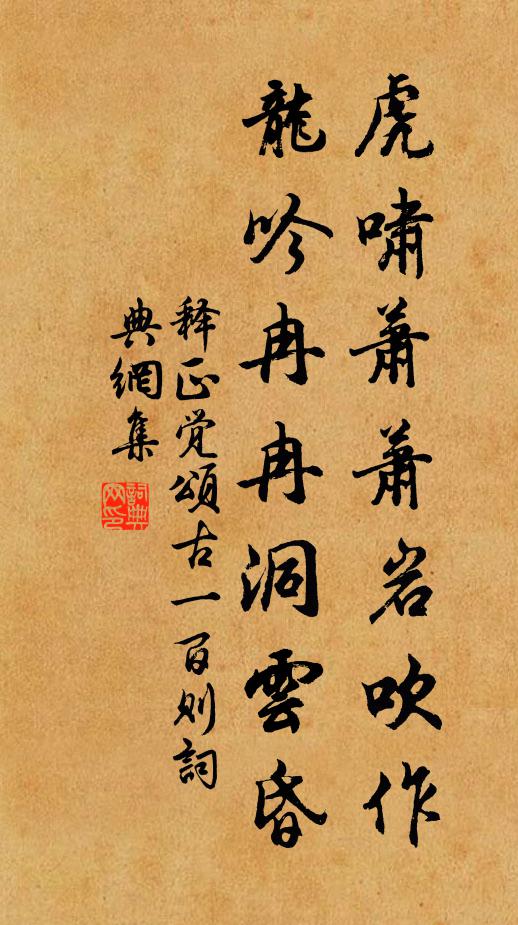 虎嘯蕭蕭岩吹作
龍吟冉冉洞雲昏
释正觉頌古一百则詞
典網集
詞典网印